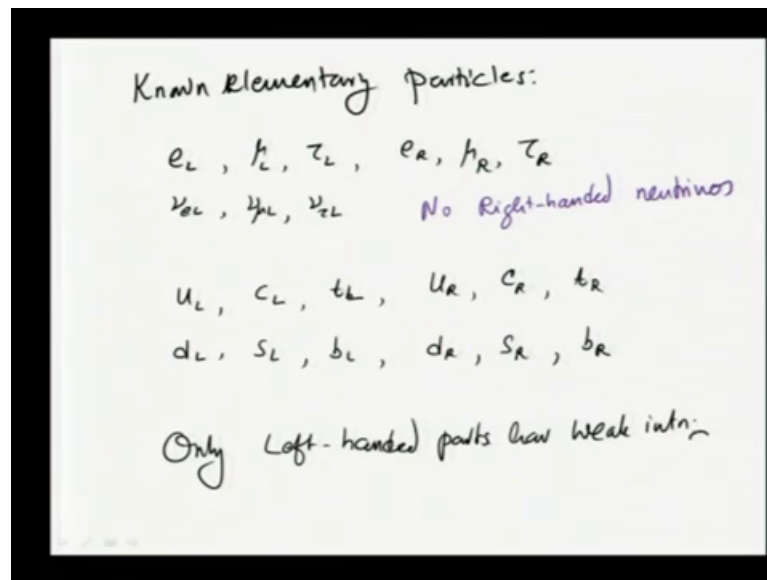 Known Elementary particles:
e_L , μ_L , τ_L , e_R , μ_R , τ_R
ν_eL , ν_μL , ν_τL No Right-handed neutrinos
u_L , c_L , t_L , u_R , c_R , t_R
d_L , s_L , b_L , d_R , s_R , b_R
Only Left-handed parts have weak intn: